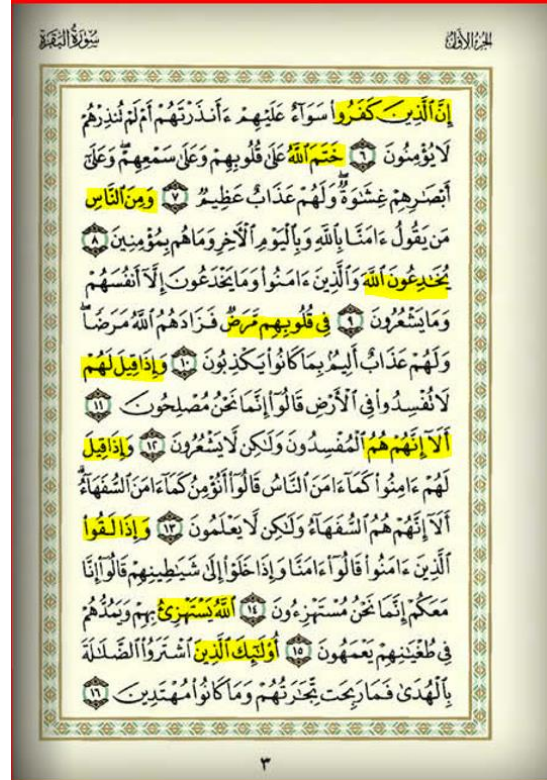 سُورَةُ البَقَرَةِ الجُزْءُ الأَوَّلُ
إِنَّ ٱلَّذِينَ كَفَرُوا۟ سَوَآءٌ عَلَيْهِمْ ءَأَنذَرْتَهُمْ أَمْ لَمْ تُنذِرْهُمْ
لَا يُؤْمِنُونَ ٦ خَتَمَ ٱللَّهُ عَلَىٰ قُلُوبِهِمْ وَعَلَىٰ سَمْعِهِمْ ۖ وَعَلَىٰٓ
أَبْصَٰرِهِمْ غِشَٰوَةٌ ۖ وَلَهُمْ عَذَابٌ عَظِيمٌ ٧ وَمِنَ ٱلنَّاسِ
مَن يَقُولُ ءَامَنَّا بِٱللَّهِ وَبِٱلْيَوْمِ ٱلْءَاخِرِ وَمَا هُم بِمُؤْمِنِينَ ٨
يُخَٰدِعُونَ ٱللَّهَ وَٱلَّذِينَ ءَامَنُوا۟ وَمَا يَخْدَعُونَ إِلَّآ أَنفُسَهُمْ
وَمَا يَشْعُرُونَ ٩ فِى قُلُوبِهِم مَّرَضٌ فَزَادَهُمُ ٱللَّهُ مَرَضًا ۖ
وَلَهُمْ عَذَابٌ أَلِيمٌۢ بِمَا كَانُوا۟ يَكْذِبُونَ ١٠ وَإِذَا قِيلَ لَهُمْ
لَا تُفْسِدُوا۟ فِى ٱلْأَرْضِ قَالُوٓا۟ إِنَّمَا نَحْنُ مُصْلِحُونَ ١١
أَلَآ إِنَّهُمْ هُمُ ٱلْمُفْسِدُونَ وَلَٰكِن لَّا يَشْعُرُونَ ١٢ وَإِذَا قِيلَ
لَهُمْ ءَامِنُوا۟ كَمَآ ءَامَنَ ٱلنَّاسُ قَالُوٓا۟ أَنُؤْمِنُ كَمَآ ءَامَنَ ٱلسُّفَهَآءُ ۗ
أَلَآ إِنَّهُمْ هُمُ ٱلسُّفَهَآءُ وَلَٰكِن لَّا يَعْلَمُونَ ١٣ وَإِذَا لَقُوا۟
ٱلَّذِينَ ءَامَنُوا۟ قَالُوٓا۟ ءَامَنَّا وَإِذَا خَلَوْا۟ إِلَىٰ شَيَٰطِينِهِمْ قَالُوٓا۟ إِنَّا
مَعَكُمْ إِنَّمَا نَحْنُ مُسْتَهْزِءُونَ ١٤ ٱللَّهُ يَسْتَهْزِئُ بِهِمْ وَيَمُدُّهُمْ
فِى طُغْيَٰنِهِمْ يَعْمَهُونَ ١٥ أُو۟لَٰٓئِكَ ٱلَّذِينَ ٱشْتَرَوُا۟ ٱلضَّلَٰلَةَ
بِٱلْهُدَىٰ فَمَا رَبِحَت تِّجَٰرَتُهُمْ وَمَا كَانُوا۟ مُهْتَدِينَ ١٦
٣